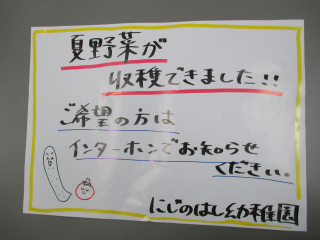 夏野菜が
収穫できました!!
ご希望の方は
インターホンでお知らせ
ください。
にじのはし幼稚園